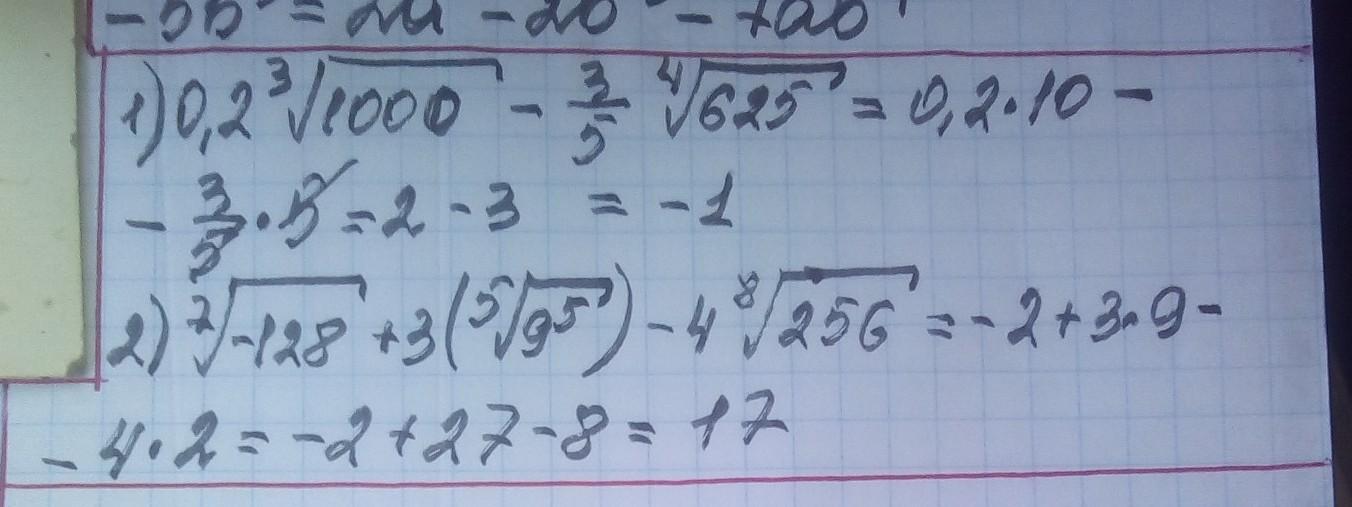 1) 0,2 ³√1000 - 3/5 ⁴√625 = 0,2·10 -
- 3/5 · 5 = 2 - 3 = -1
2) ⁷√-128 + 3(⁵√9⁵) - 4 ⁸√256 = -2 + 3·9 -
- 4·2 = -2 + 27 - 8 = 17